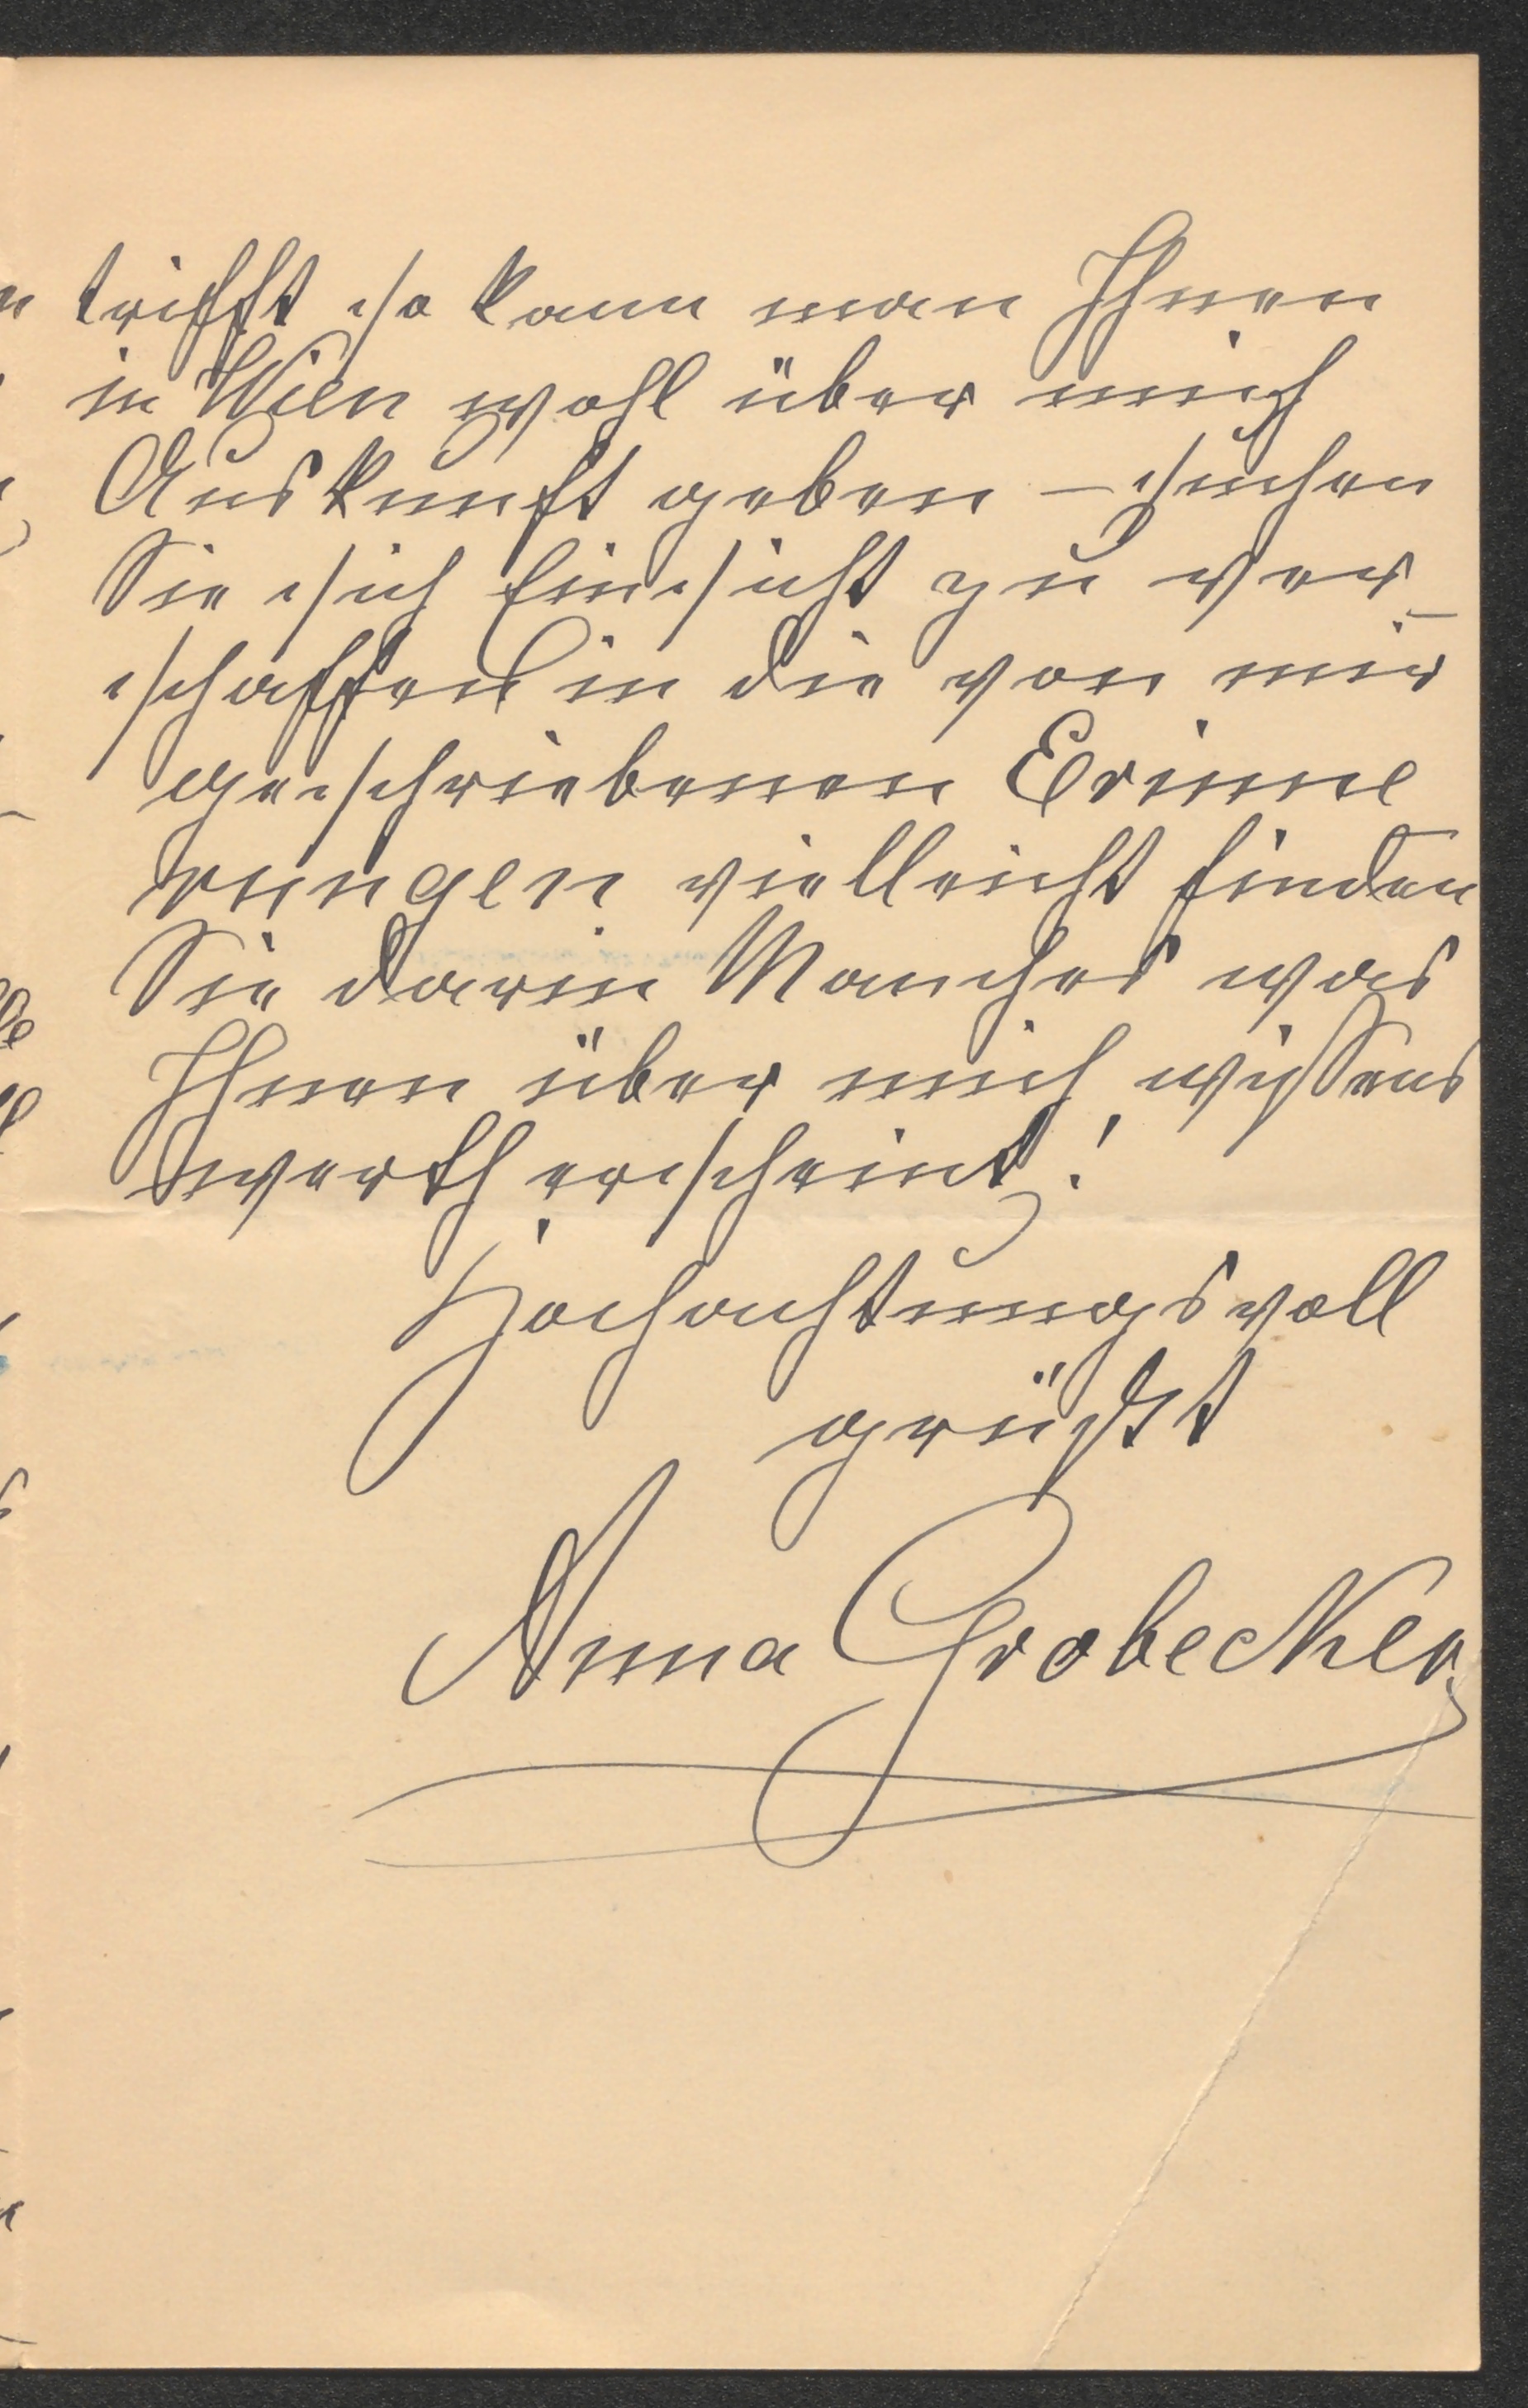 trifft so kann man Ihnen
in Wien wohl über mich
Auskunft geben – suchen
Sie sich Einsicht zu ver-
schaffen in die von mir
geschriebenen Erinne
rungen vielleicht finden
Sie darin Manches was
Ihnen über mich wissens
werth erscheint!
Hochachtungsvoll
grüßt
Anna Grobecker